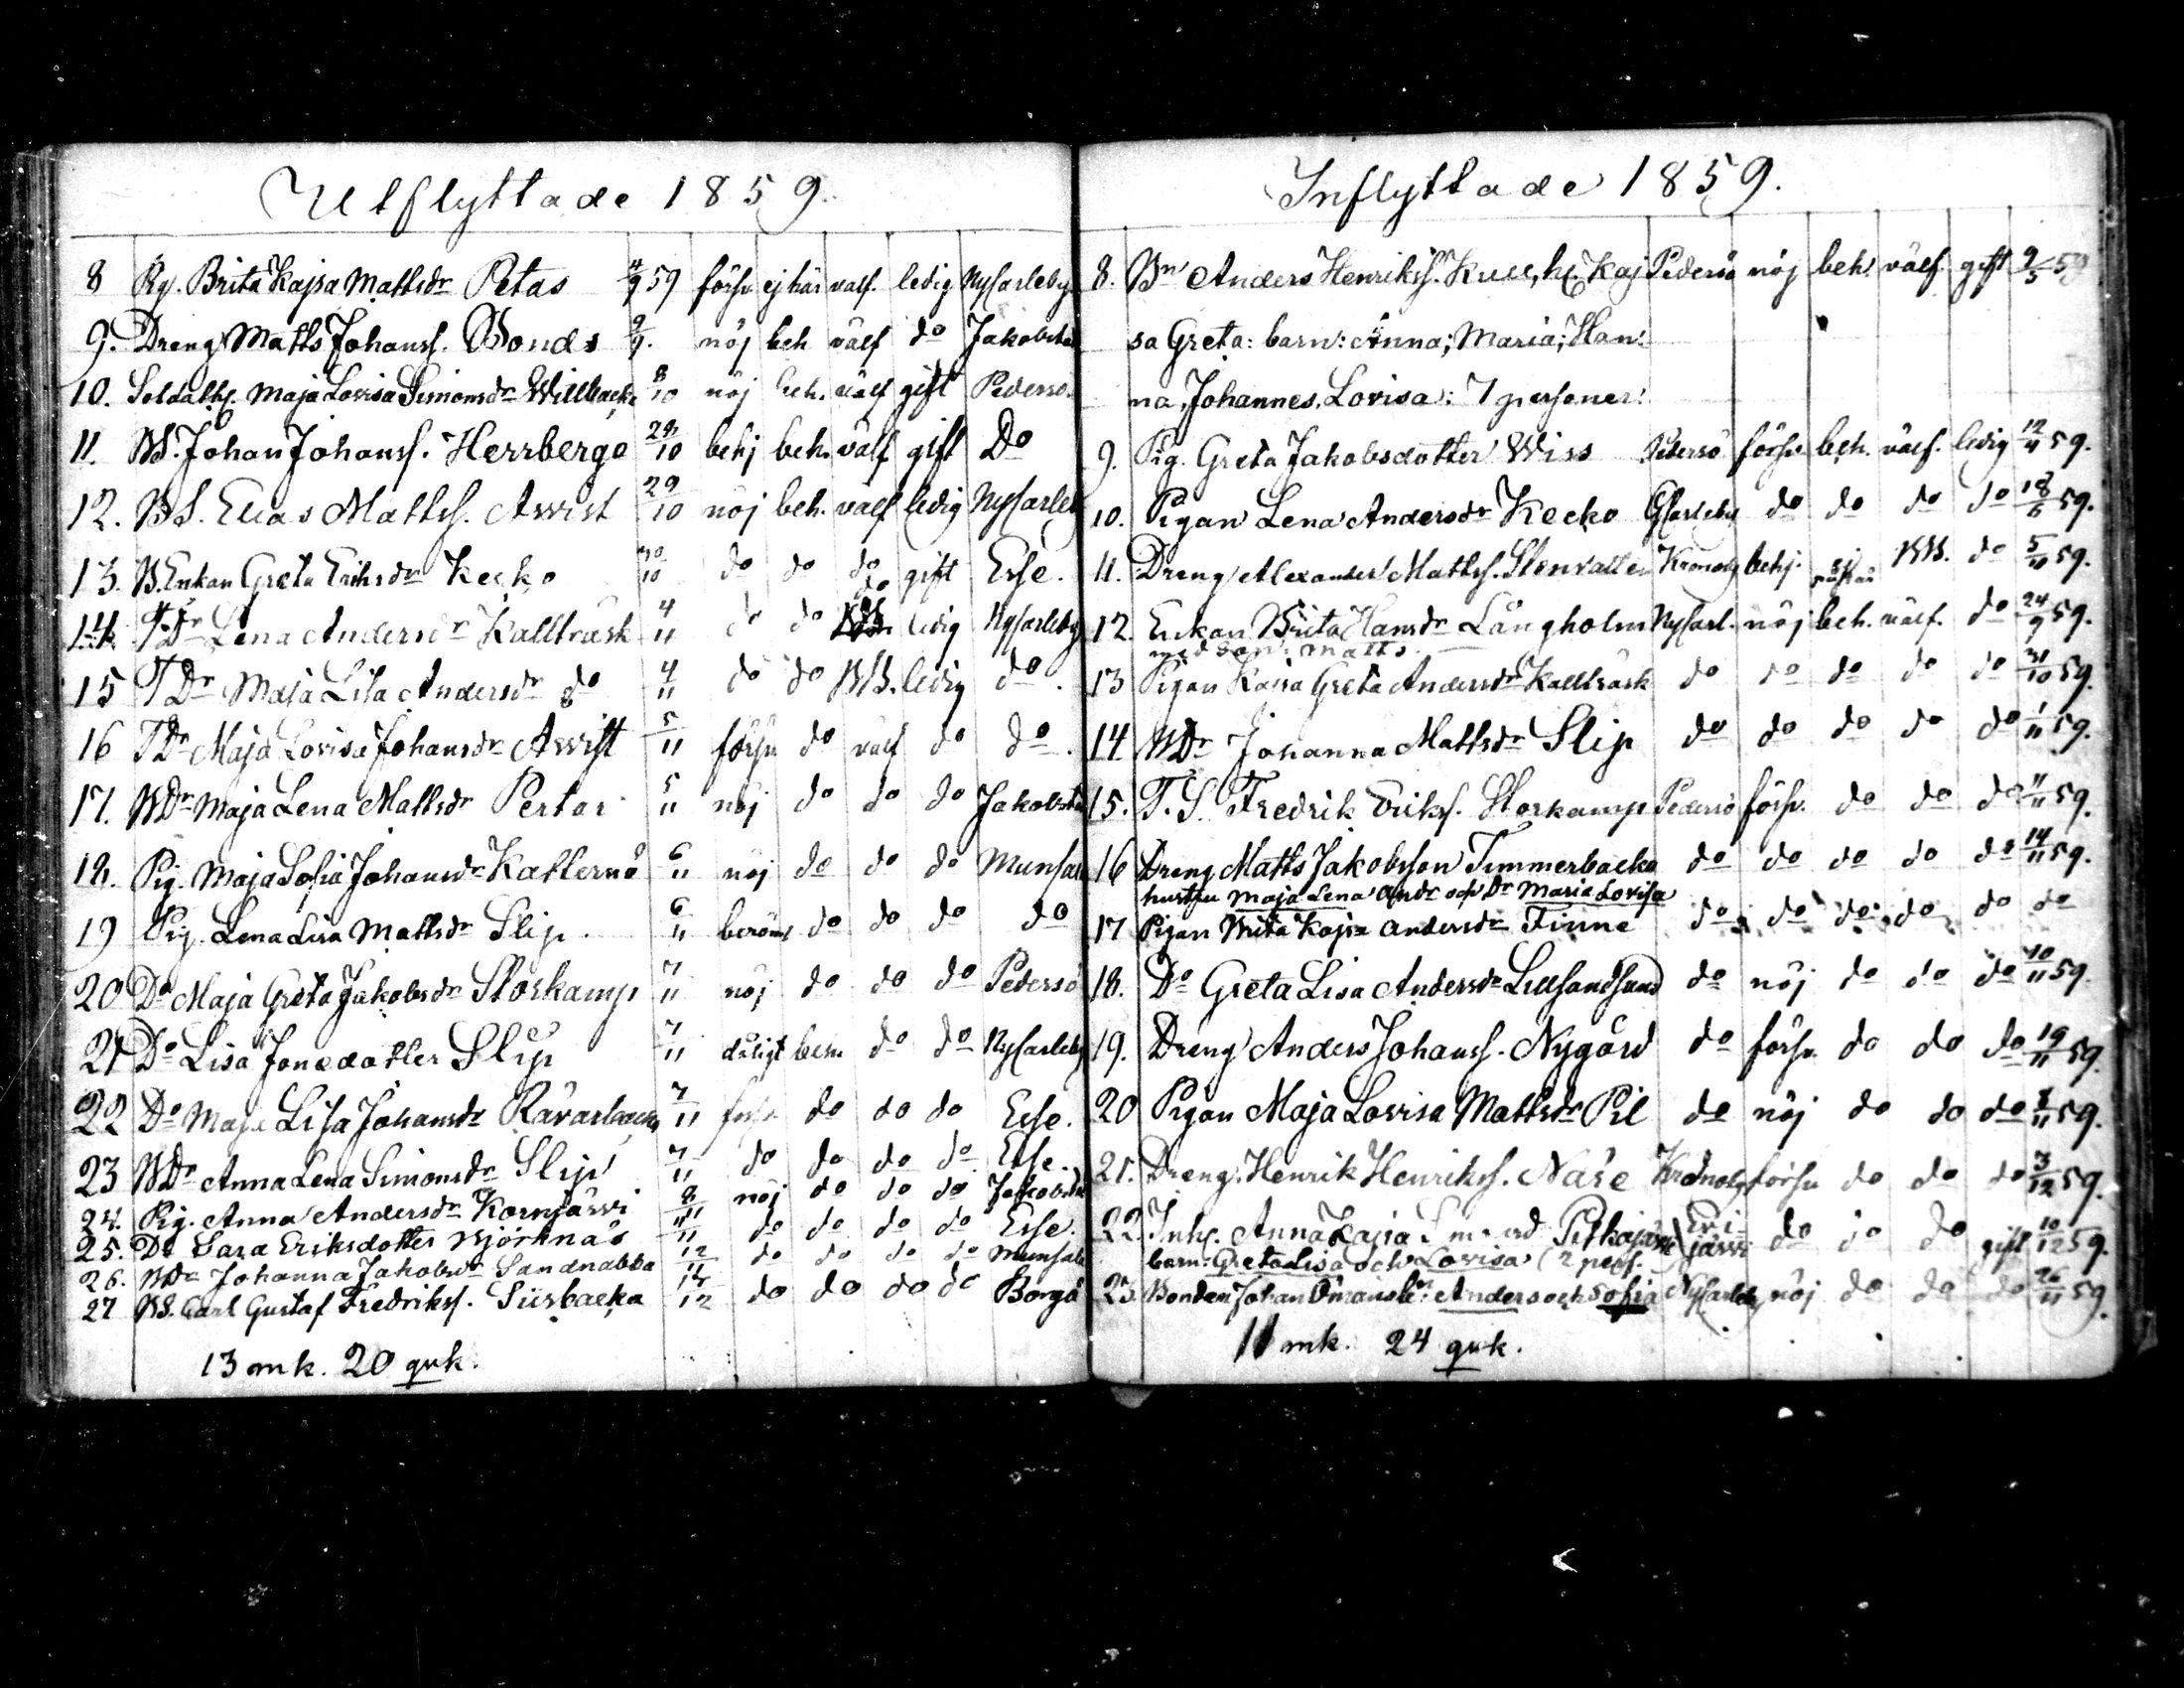 Utflyttade 1859.
8 Pig. Brita Kajsa Mattsdr Petas 4/9 59 försv ej här välf. ledig NyCarleby
9. Dreng Matts Johanss. Bonds 9/9. nöj beh välf do Jakobstad
10. Soldath. Maja Lovisa Simonsdr Willbacka 8/10 nöj beh. välf gift Pedersö.
11. BS. Johan Johanss. Herrberga 29/10 behj beh. välf gift Do
12. BS. Elias Mattss. Awist 29/10 nöj beh. välf ledig NyCarleby
13. B. Enkan Greta Eriksdr Kecko 30/10 do do do gift Esse.
14. TDr Lena Andersdr Kallträsk 4/11 do do ledig NyCarleby
15 TDr Maja Lisa Andersdr do 4/11 do do BB. ledig do.
16 TDr Maja Lovisa Johansdr Awist 5/11 försv do välf do do.
17. BDr Maja Lena Mattsdr Pertar 5/11 nöj do do do Jakobstad
18. Pig. Maja Sofia Johansdr Katternö 6/11 nöj do do do Munsala
19 Pig. Lena Lisa Mattsdr Slip. 6/11 beröml do do do do
20 Do Maja Greta Jakobsdr Storkamp 7/11 nöj do do do Pedersö
21 Do Lisa Jonedotter Slip 7/11 dåligt beh. do do NyCarleby
22 Do Maja Lisa Johansdr Rävarbacka 7/11 försv do do do Esse.
23 BDr Anna Lena Simonsdr Slip 7/11 do do do do Esse.
24. Pig. Anna Andersdr Kornjärwi 8/11 nöj do do do Jakobstad
25. Do Sara Eriksdotter Björknäs 11/11 do do do do Esse.
26. BDr Johanna Jakobsdr Sandnabba 12/11 do do do do Munsala
27 BS. Carl Gustaf Fredrikss. Sursbacka 14/12 do do do do Borgå
13 mk. 20 qvk.
Inflyttade 1859.
8. Bn Anders Henrikss. Kull, h. Kaj Pedersö nöj beh. välf. gift 9/5 59
sa Greta: barn: Anna; Maria; Han:
na, Johannes, Lovisa: 7 personer:
9. Pig. Greta Jakobsdotter Wiss Pedersö försv beh. välf. ledig 12/4 59.
10. Pigan Lena Andersdr Kecko GCarleby do do do do 18/6 59.
11. Dreng Alexander Mattss. Stenvalle Kronoby behj. ej BB. do 5/11 59.
12. Enkan Brita Hansdr Långholm NyCarl. nöj beh. välf. do 24/9 59.
med son: Matts.
13 Pigan Kajsa Greta Andersdr Kallträsk do do do do do 31/10 59.
14 BDr Johanna Mattsdr Slip do do do do do 1/11 59.
15. T.S. Fredrik Erikss. Storkamp Pedersö försv. do do do 11/11 59.
16 Dreng Matts Jakobsson Timmerbacka do do do do do 14/11 59.
hustru Maja Lena Andr och Dr Maria Lovisa
17 Pigan Brita Kajsa Andersdr Finne do do do do do do
18. Do Greta Lisa Andersdr Lillsandsund do nöj do do do 10/11 59.
19. Dreng Anders Johanss. Nygård do försv do do do 19/11 59.
20 Pigan Maja Lovisa Mattsdr Pil do nöj do do do 8/11 59.
21. Dreng. Henrik Henrikss. Nåre Kronoby försv do do do 3/12 59.
22. Inh. Anna Kajsa Pitkäjärwi Evijärvi do do do gift 10/12 59.
barn: Greta Lisa och Lovisa (2 pers.
23. Bonden Johan Ömans bn: Anders och Sofia NyCarleby nöj do do do 26/11 59.
11 mk. 24 qvk.